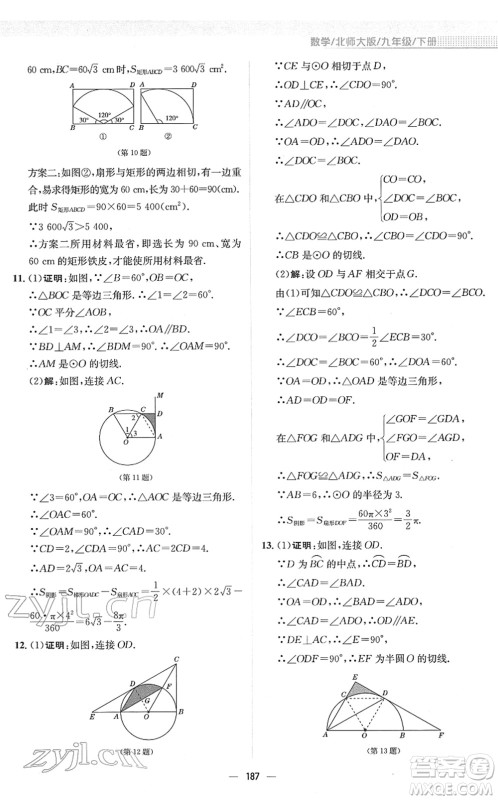 数学/北师大版/九年级/下册
60 cm,BC=60√3 cm时,S矩形ABCD=3 600√3 cm².
A D A D
30° 120° 30° 120°
B C B C
① ②
(第10题)
方案二:如图②,扇形与矩形的两边相切,有一边重
合,易求得矩形的宽为 60 cm,长为 30+60=90(cm).
此时 S矩形ABCD=90×60=5 400(cm²).
∵3 600√3>5 400,
∴方案二所用材料最省,即选长为 90 cm,宽为
60 cm的矩形铁皮,才能使所用材料最省.
11. (1)证明:如图,∵∠B=60°,OB=OC,
∴△BOC 是等边三角形.∴∠1=∠2=60°.
∵OC 平分∠AOB,
∴∠1=∠3.∴∠2=∠3.∴OA∥BD.
∵BD⊥AM,∴∠BDM=90°.∴∠OAM=90°.
∴AM 是⊙O 的切线.
(2)解:如图,连接 AC.
M
B C D
1 2
3
O A
(第11题)
∵∠3=60°,OA=OC,∴△AOC 是等边三角形.
∴∠OAC=60°.∵∠OAM=90°,∴∠CAD=30°.
∵CD=2,∠CDA=90°,∴AC=2CD=4.
∴AD=2√3.∴OA=4.
∴S阴影=S梯形OADC−S扇形OAC=1/2×(4+2)×2√3−
60·π×4²/360=6√3−8π/3.
12. (1)证明:如图,连接 OD.
C
D F
G
E A O B
(第12题)
∵CE 与⊙O 相切于点 D,
∴OD⊥CE.∴∠CDO=90°.
∵AD∥OC,
∴∠ADO=∠DOC,∠DAO=∠BOC.
∵OA=OD,∴∠ADO=∠DAO.
∴∠DOC=∠BOC.
在△CDO 和△CBO中, { CO=CO,
∠DOC=∠BOC,
OD=OB,
∴△CDO≌△CBO.∴∠CBO=∠CDO=90°.
∴CB 是⊙O 的切线.
(2)解:设 OD 与 AF 相交于点G.
由(1)可知△CDO≌△CBO,∴∠DCO=∠BCO.
∵∠ECB=60°,
∴∠DCO=∠BCO=1/2∠ECB=30°.
∴∠DOC=∠BOC=60°.∴∠DOA=60°.
∵OA=OD,∴△OAD 是等边三角形.
∴AD=OD=OF.∵∠GOF=∠ADO,
在△FOG 和△ADG中, { ∠GOF=∠GDA,
∠FGO=∠AGD,
OF=AD,
∴△FOG≌△ADG.∴S△ADG=S△FOG.
∵AB=6,∴⊙O 的半径为 3.
∴S阴影=S扇形DOF=60π×3²/360=3/2π.
13. (1)证明:如图,连接 OD.
∵D 为BC的中点,∴CD=BD.
∴∠CAD=∠BAD.
∵OA=OD,∴∠BAD=∠ADO.
∴∠CAD=∠ADO.
∵DE⊥AC,∴∠E=90°.
∴∠CAD+∠EDA=90°.
∴∠ADO+∠EDA=90°,即∠ODE=90°.
∴OD⊥EF.∴EF 为半圆 O 的切线.
E
C D
A O B F
(第13题)
187
zyjl.cn
答案圈
MXQE.COM